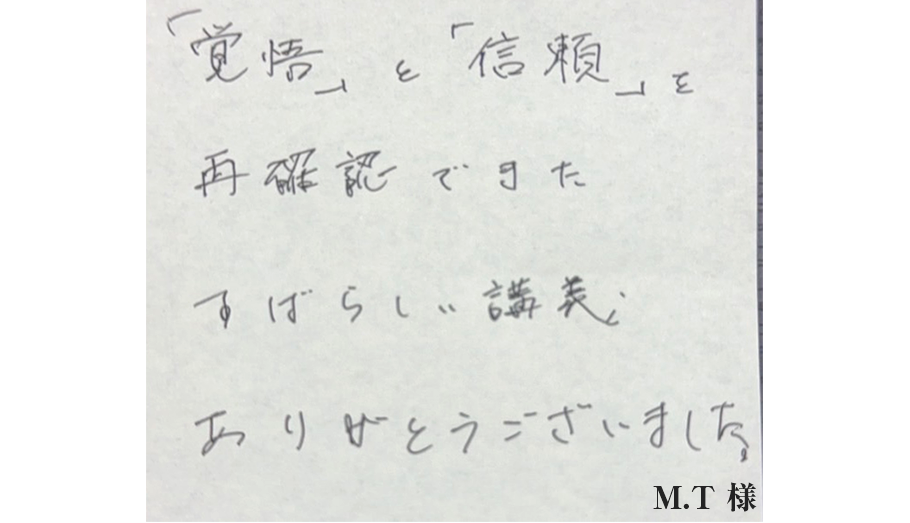 「覚悟」と「信頼」を
再確認できた
すばらしい講義、
ありがとうございました。
M.T 様